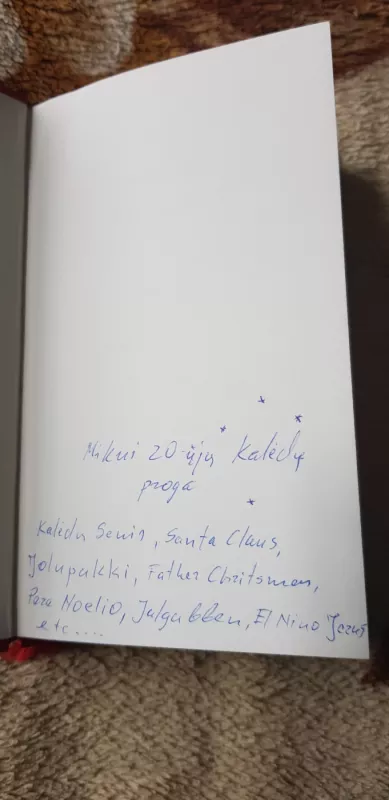 Mikui 20-ųjų Kalėdų
proga
Kalėdų Senis, Santa Claus,
Jolupukki, Father Chritsmen,
Papa Noelio, Julgubben, El Nino Jezus
etc....